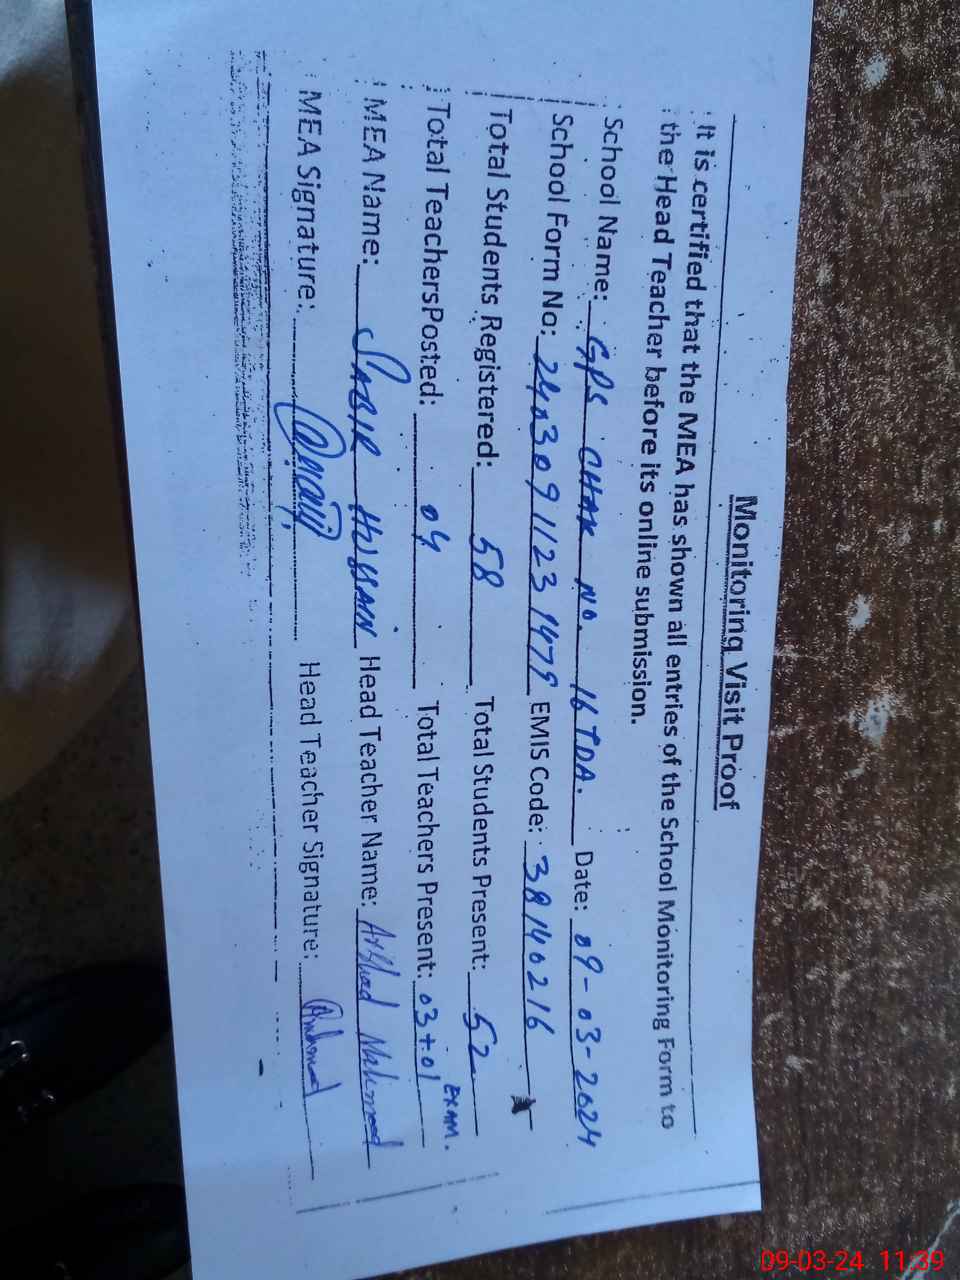 Monitoring Visit Proof
It is certified that the MEA has shown all entries of the School Monitoring Form to
the Head Teacher before its online submission.
School Name: GPS CHAK NO. 16 TDA. Date: 09-03-2024
School Form No: 24030911231479 EMIS Code: 38140216
Total Students Registered: 58 Total Students Present: 52
Total TeachersPosted: 04 Total Teachers Present: 03+01 EXAM.
MEA Name: SABIR HUSSAIN Head Teacher Name: Arshad Mahmood
MEA Signature: Head Teacher Signature:
09-03-24 11:39